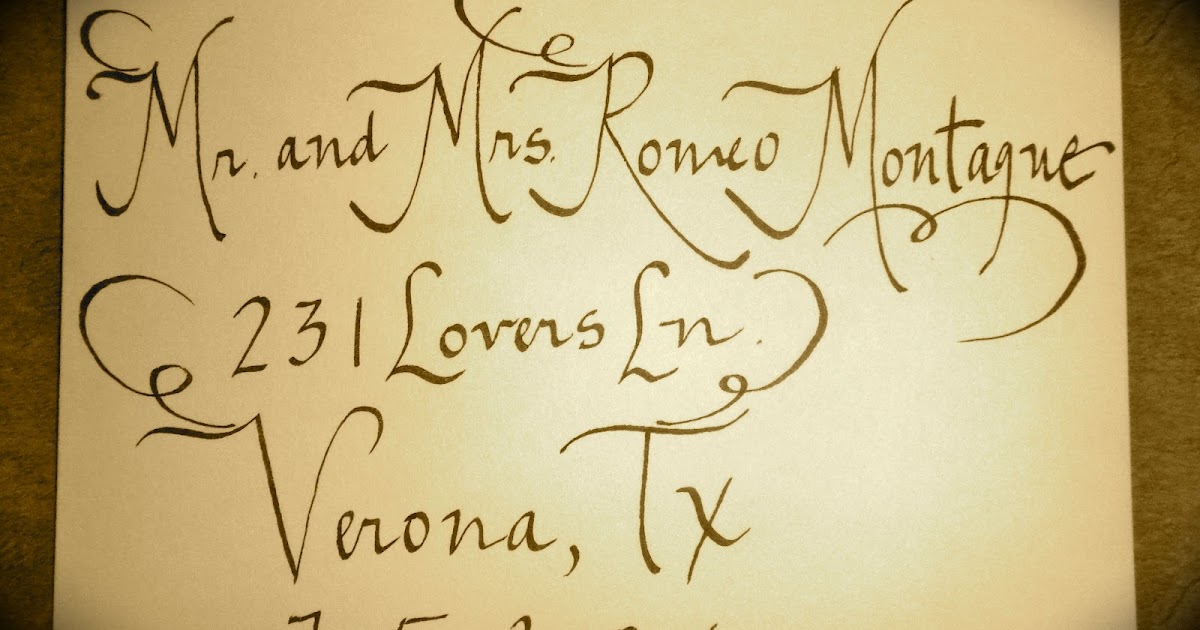 Mr. and Mrs. Romeo Montague
231 Lovers Ln.
Verona, Tx